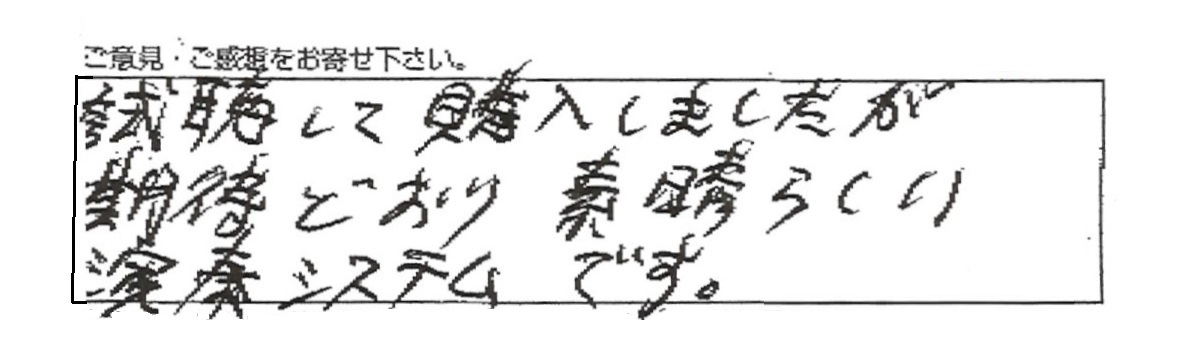 ご意見・ご感想をお寄せ下さい。
試聴して購入しましたが
期待どおり 素晴らしい
演奏システムです。